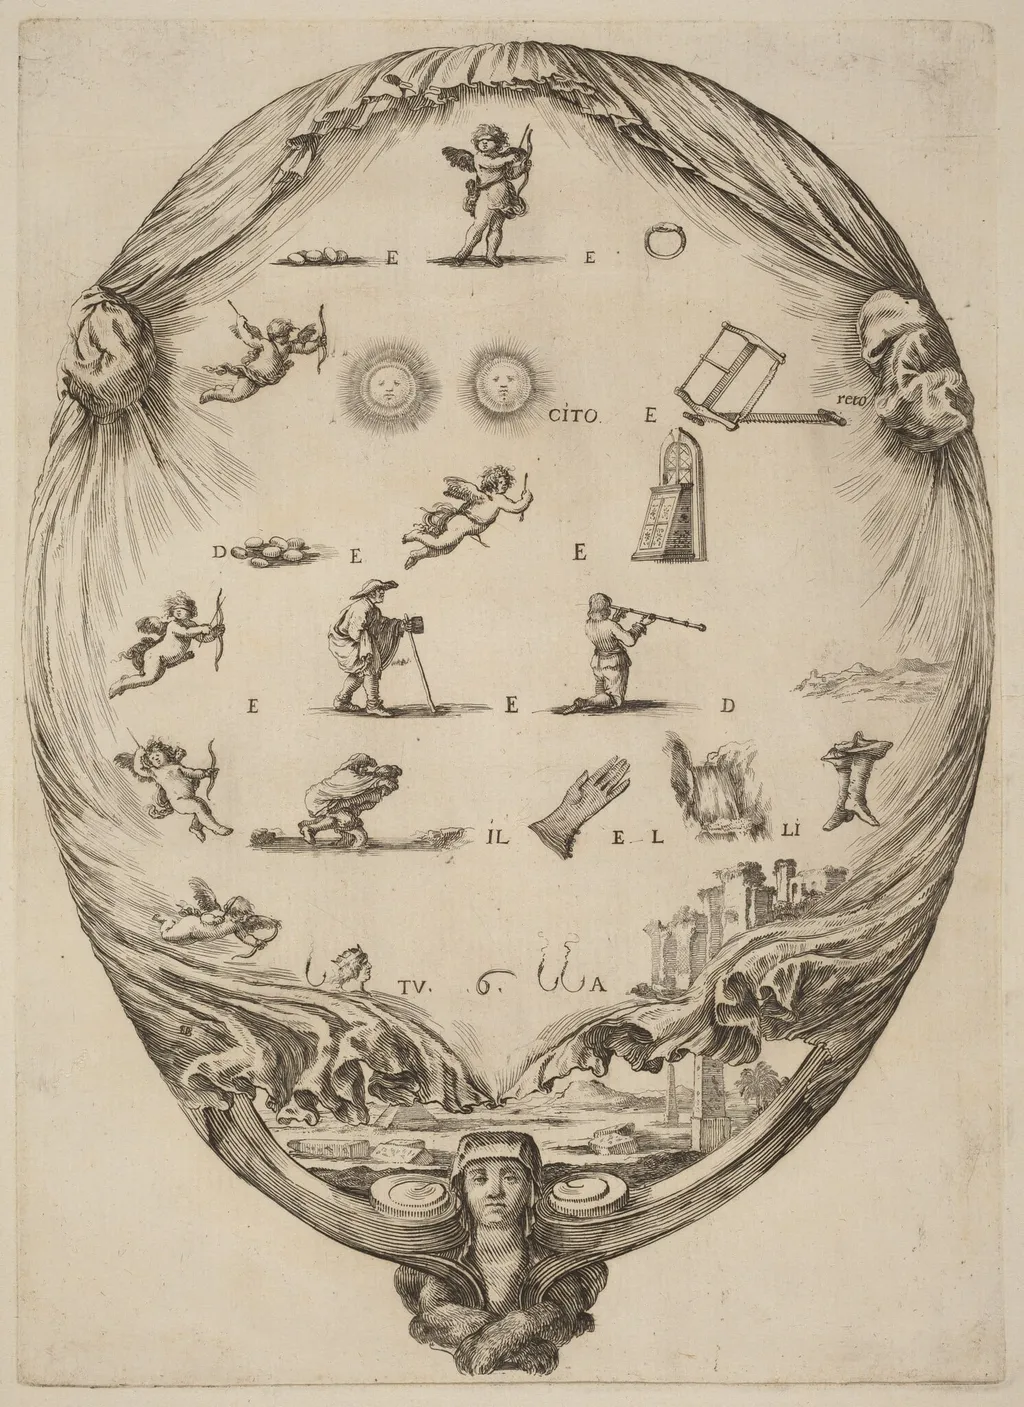 E E
CİTO. E reto
D E E
E E D
İL E L Lİ
TV. .6. A
SB